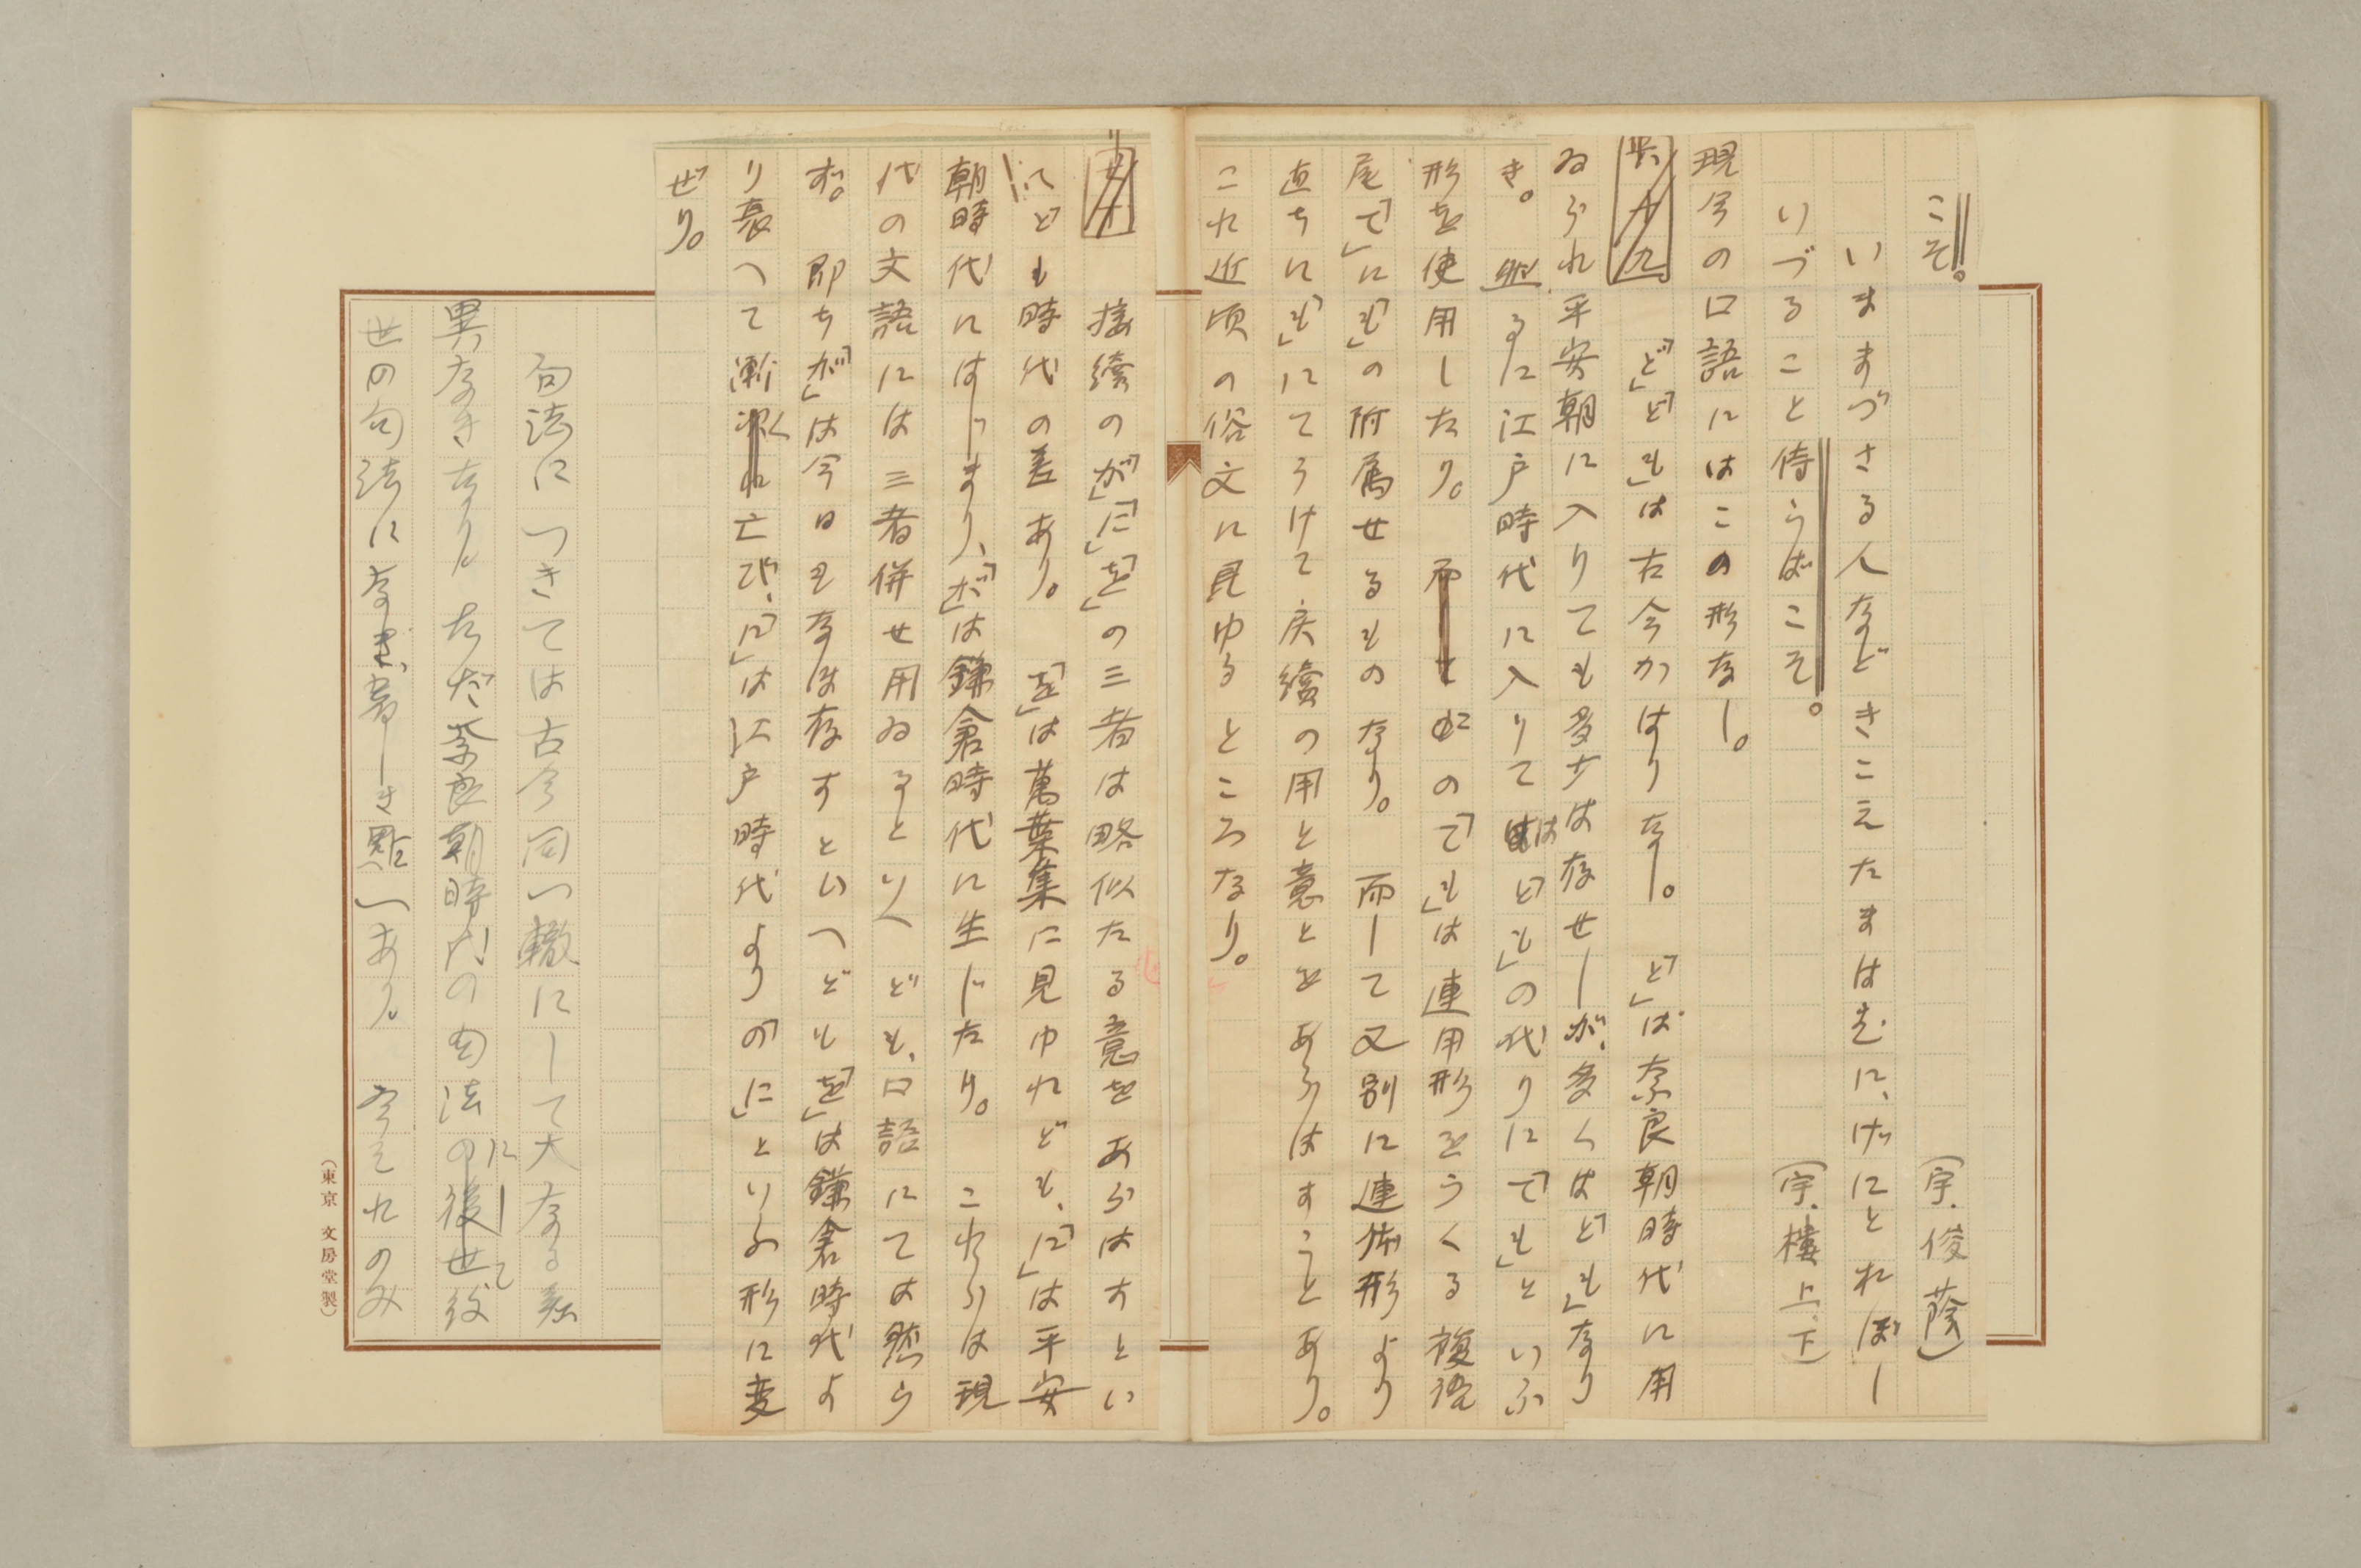 こそ。　（宇、俊蔭）
いままづさる人などきこえたまはむに、げにとれぼし
いづること侍らばこそ。　（宇、樓上、下）
現今の口語にはこの形なし。
「ど」「ども」は古今かはりなし。「ど」は奈良朝時代に用
ゐられ平安朝に入りても多少は存せしが、多くは「ども」なり
き。然るに江戸時代に入りては「とも」の代りに「ても」といふ
形を使用したり。この「ても」は連用形をうくる複語
尾「て」に「も」の附属せるものなり。而して又別に連体形より
直ちに「も」にてうけて戻續の用と意とをあらはすことあり。
これ近頃の俗文に見ゆるところなり。
接續の「が」「に」「を」の三者は略似たる意をあらはすとい
へども時代の差あり。「を」は萬葉集に見ゆれども、「に」は平安
朝時代にはじまり、「が」は鎌倉時代に生じたり。これらは現
代の文語には三者併せ用ゐるといへども、口語にては然ら
ず。即ち「が」は今日もなほ存すといへども「を」は鎌倉時代よ
り衰へて漸く亡び、「に」は江戸時代より「のに」といふ形に変
ぜり。
句法につきては古今同一轍にして大なる差
異なきなり。ただ奈良朝時代の句法にして後
世の句法になき著しき點一あり。今それのみ
（東京　文房堂製）